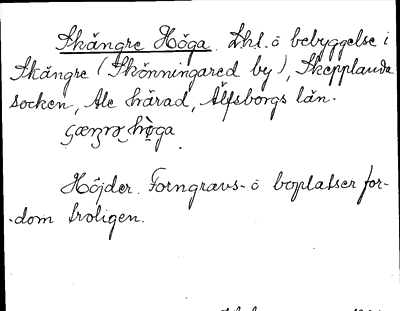 Skängre Höga. Lhl. o bebyggelse i
Skängre (Skönningared by), Skepplanda
socken, Ale härad, Älfsborgs län.
hö̀ga.
Höjder. Forngravs- o boplatser for-
dom troligen.